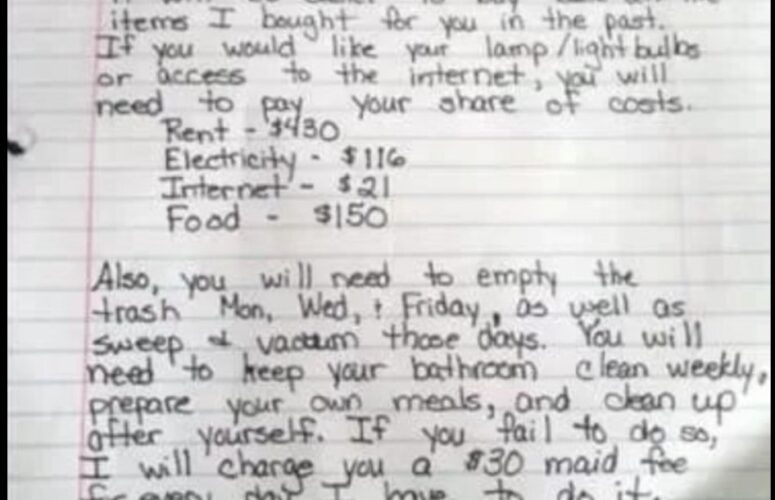 items I bought for you in the past.
If you would like your lamp/lightbulbs
or access to the internet, you will
need to pay your share of costs.
Rent - $430
Electricity - $116
Internet - $21
Food - $150
Also, you will need to empty the
trash Mon, Wed, + Friday, as well as
sweep + vacuum those days. You will
need to keep your bathroom clean weekly,
prepare your own meals, and clean up
after yourself. If you fail to do so,
I will charge you a $30 maid fee
for every day I have to do it